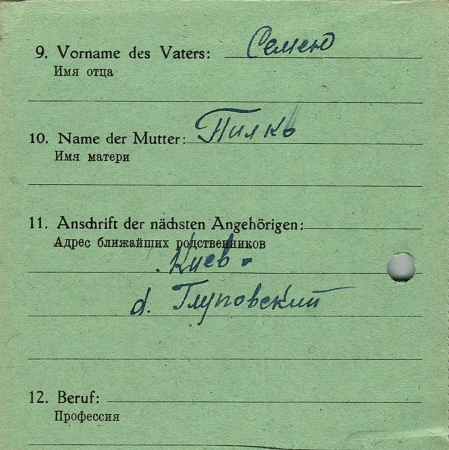 9. Vorname des Vaters: Семен
Имя отца
10. Name der Mutter: Пилкь
Имя матери
11. Anschrift der nächsten Angehörigen:
Адрес ближайших родственников
Киев
д. Глуповский
12. Beruf:
Профессия